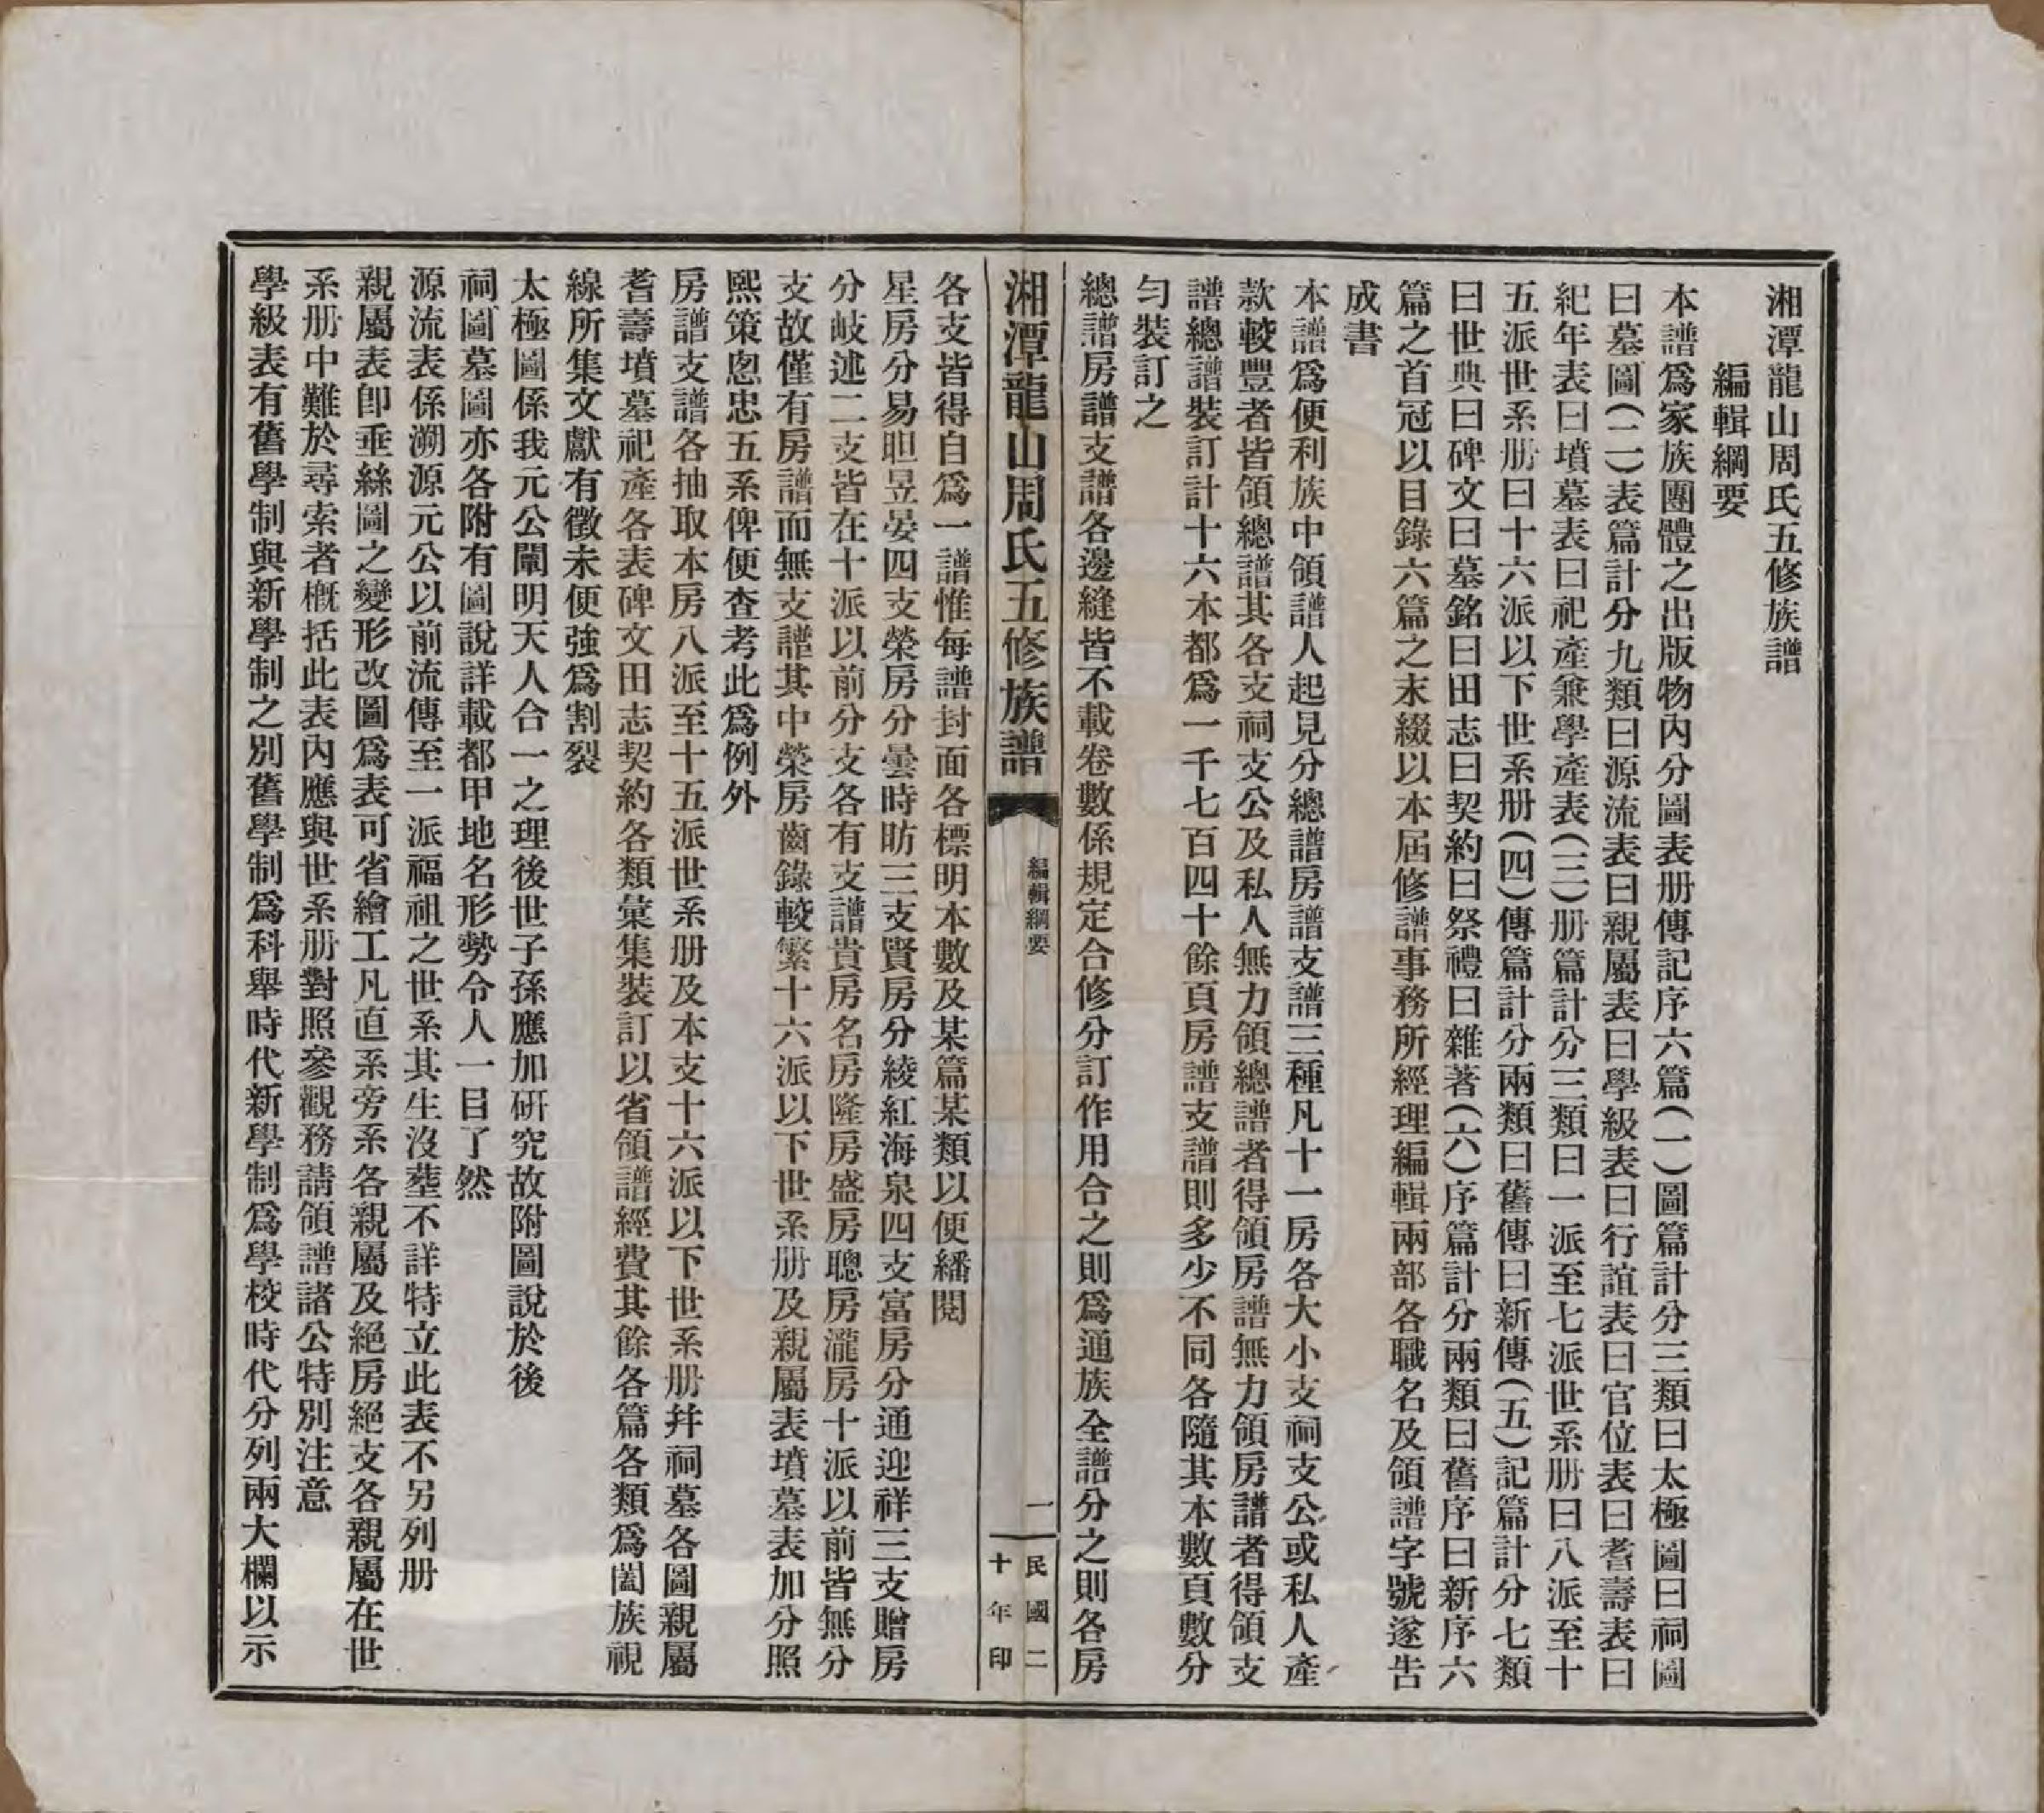 湘潭龍山周氏五修族譜
編輯綱要
本譜爲家族團體之出版物內分圖表册傳記序六篇(一)圖篇計分三類曰太極圖曰祠圖
曰墓圖(二)表篇計分九類曰源流表曰親屬表曰學級表曰行誼表曰官位表曰耆壽表曰
紀年表曰墳墓表曰祀產兼學產表(三)册篇計分三類曰一派至七派世系册曰八派至十
五派世系册曰十六派以下世系册(四)傳篇計分兩類曰舊傳曰新傳(五)記篇計分七類
曰世典曰碑文曰墓銘曰田志曰契約曰祭禮曰雜著(六)序篇計分兩類曰舊序曰新序六
篇之首冠以目錄六篇之末綴以本屆修譜事務所經理編輯兩部各職名及領譜字號遂告
成書
本譜爲便利族中領譜人起見分總譜房譜支譜三種凡十一房各大小支祠支公或私人產
款較豐者皆領總譜其各支祠支公及私人無力領總譜者得領房譜無力領房譜者得領支
譜總譜裝訂計十六本都爲一千七百四十餘頁房譜支譜則多少不同各隨其本數頁數分
勻裝訂之
總譜房譜支譜各邊縫皆不載卷數係規定合修分訂作用合之則爲通族全譜分之則各房
湘潭龍山周氏五修族譜
編輯綱要
一
民國二
十年印
各支皆得自爲一譜惟每譜封面各標明本數及某篇某類以便繙閱
星房分易昍昱晏四支榮房分曇時昉三支賢房分綾紅海泉四支富房分通迎祥三支贈房
分岐述二支皆在十派以前分支各有支譜貴房名房隆房盛房聰房瀧房十派以前皆無分
支故僅有房譜而無支譜其中榮房齒錄較繁十六派以下世系册及親屬表墳墓表加分照
熙策悤忠五系俾便查考此爲例外
房譜支譜各抽取本房八派至十五派世系册及本支十六派以下世系册幷祠墓各圖親屬
耆壽墳墓祀產各表碑文田志契約各類彙集裝訂以省領譜經費其餘各篇各類爲闔族視
線所集文獻有徵未便強爲割裂
太極圖係我元公闡明天人合一之理後世子孫應加研究故附圖說於後
祠圖墓圖亦各附有圖說詳載都甲地名形勢令人一目了然
源流表係溯源元公以前流傳至一派福祖之世系其生沒塟不詳特立此表不另列册
親屬表卽垂絲圖之變形改圖爲表可省繪工凡直系旁系各親屬及絕房絕支各親屬在世
系册中難於尋索者槪括此表內應與世系册對照參觀務請領譜諸公特別注意
學級表有舊學制與新學制之別舊學制爲科舉時代新學制爲學校時代分列兩大欄以示